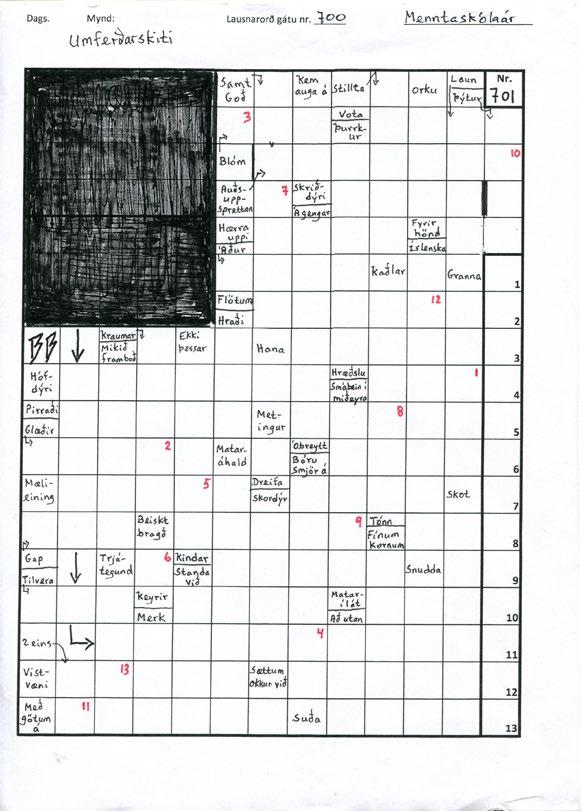 Dags. Mynd: Lausnarorð gátu nr. 700 Menntaskólaár
Umferðarskilti
Samt
Goð
Kem
auga á
Stillta
Orku
Laun
Þýtur
Nr.
701
3
Vota
Þurrk-
ur
Blóm
10
Auðs-
upp-
sprettan
7
Skrið-
dýri
Ágengar
Hærra
uppi
Áður
Fyrir
hönd
Íslenska
Kaðlar
Granna
1
Flötum
Hraði
12
2
BB
Kraumar
Mikið
framboð
Ekki
þessar
Hana
3
Hóf-
dýri
Hræðslu
Smábein í
miðeyra
1
4
Pirraði
Glæðir
Met-
ingur
8
5
2
Matar-
áhald
Óbreytt
Báru
Smjör á
6
Mæli-
eining
5
Dreifa
Skordýr
Skot
7
Beiskt
bragð
9
Tónn
Fínum
Kornum
8
Gap
Tilvera
Trjá-
tegund
6
Kindar
Standa
við
Snudda
9
Keyrir
Merk
Matar-
ílát
Að utan
10
2 eins
4
11
Vist-
væni
13
Sættum
okkur við
12
Með
götum
á
11
Suða
13